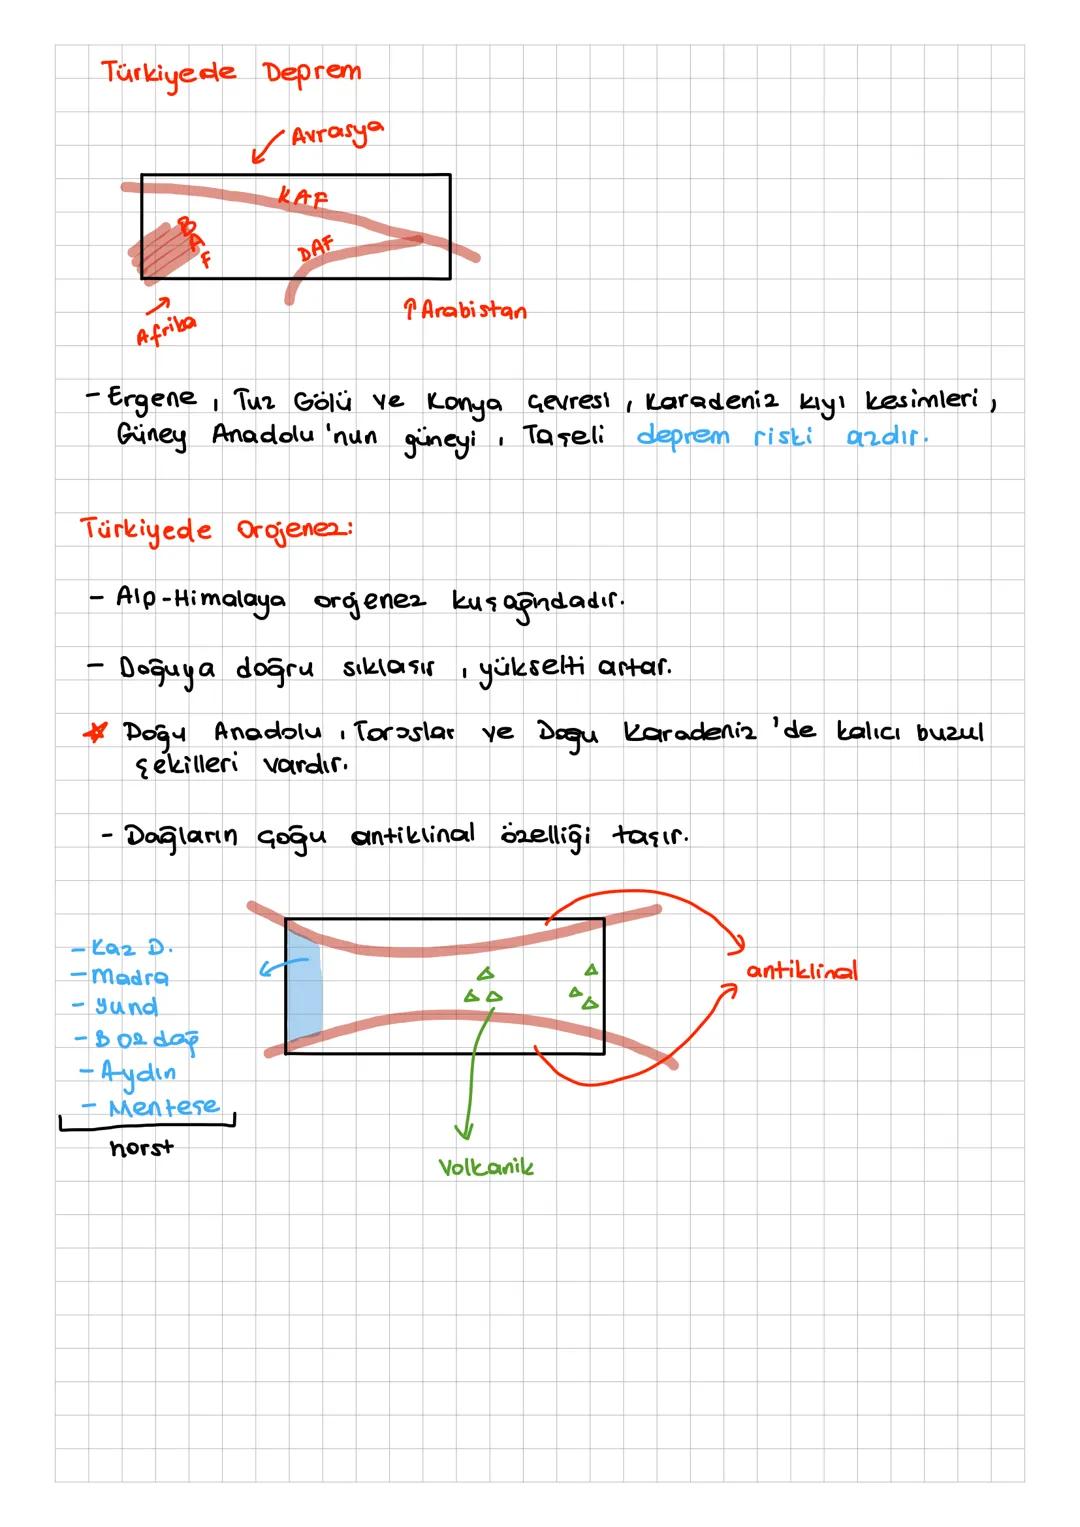 Türkiyede Deprem
Avrasya
KAF
BAF
DAF
Afrika
Arabistan
- Ergene, Tuz Gölü ve Konya çevresi, Karadeniz kıyı kesimleri,
Güney Anadolu'nun güneyi, Taşeli deprem riski azdır.
Türkiyede Orojenez:
- Alp-Himalaya orojenez kuşağındadır.
- Doğuya doğru sıklaşır, yükselti artar.
Doğu Anadolu, Toroslar ve Doğu Karadeniz'de kalıcı buzul
şekilleri vardır.
- Dağların çoğu antiklinal özelliği taşır.
- Kaz D.
- Madra
- Yund
- Bozdağ
- Aydın
- Menteşe
horst
antiklinal
Volkanik